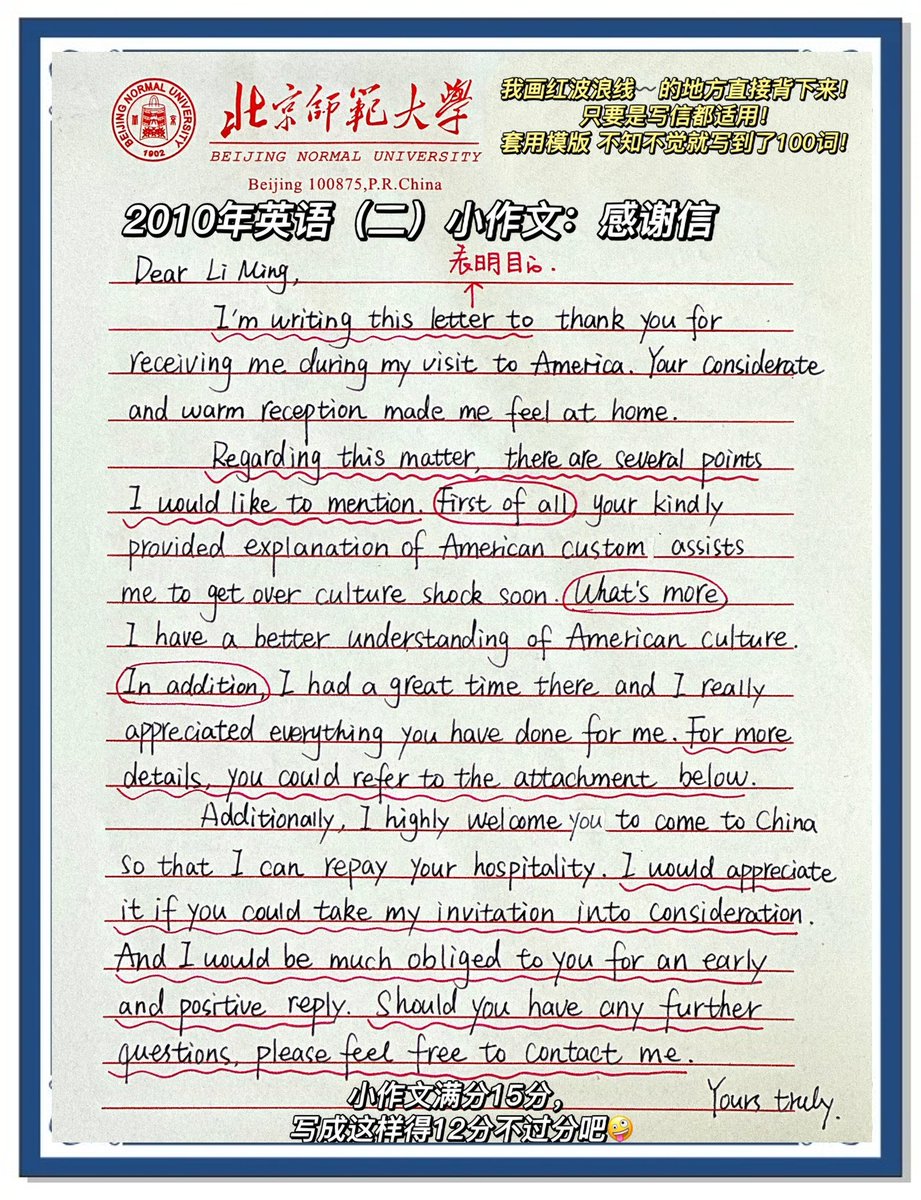 BEIJING NORMAL UNIVERSITY
1902
北京師範大學
BEIJING NORMAL UNIVERSITY
Beijing 100875,P.R.China
我画红波浪线~的地方直接背下来!
只要是写信都适用!
套用模版 不知不觉就写到了100词!
2010年英语（二）小作文：感谢信
表明目的.
Dear Li Ming,
I'm writing this letter to thank you for
receiving me during my visit to America. Your considerate
and warm reception made me feel at home.
Regarding this matter, there are several points
I would like to mention. First of all, your kindly
provided explanation of American custom assists
me to get over culture shock soon. What's more
I have a better understanding of American culture.
In addition, I had a great time there and I really
appreciated everything you have done for me. For more
details, you could refer to the attachment below.
Additionally, I highly welcome you to come to China
so that I can repay your hospitality. I would appreciate
it if you could take my invitation into consideration.
And I would be much obliged to you for an early
and positive reply. Should you have any further
questions, please feel free to contact me.
Yours truly.
小作文满分15分，
写成这样得12分不过分吧🤪